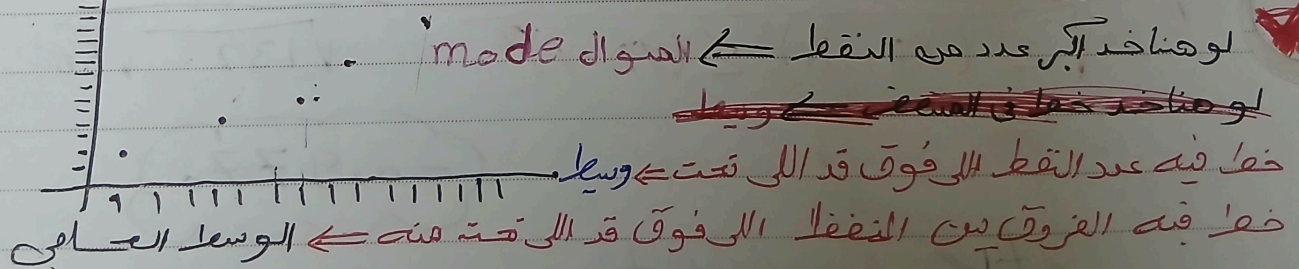 لو هناخد أكبر عدد من النقط ⇐ المنوال mode
لو هناخد خط في المنتصف ⇐ وسيط
خط فيه عدد النقط اللي فوق قد اللي تحت ⇐ وسيط
خط فيه الفروق بين النقط اللي فوق قد اللي تحت منه ⇐ الوسط الحسابي